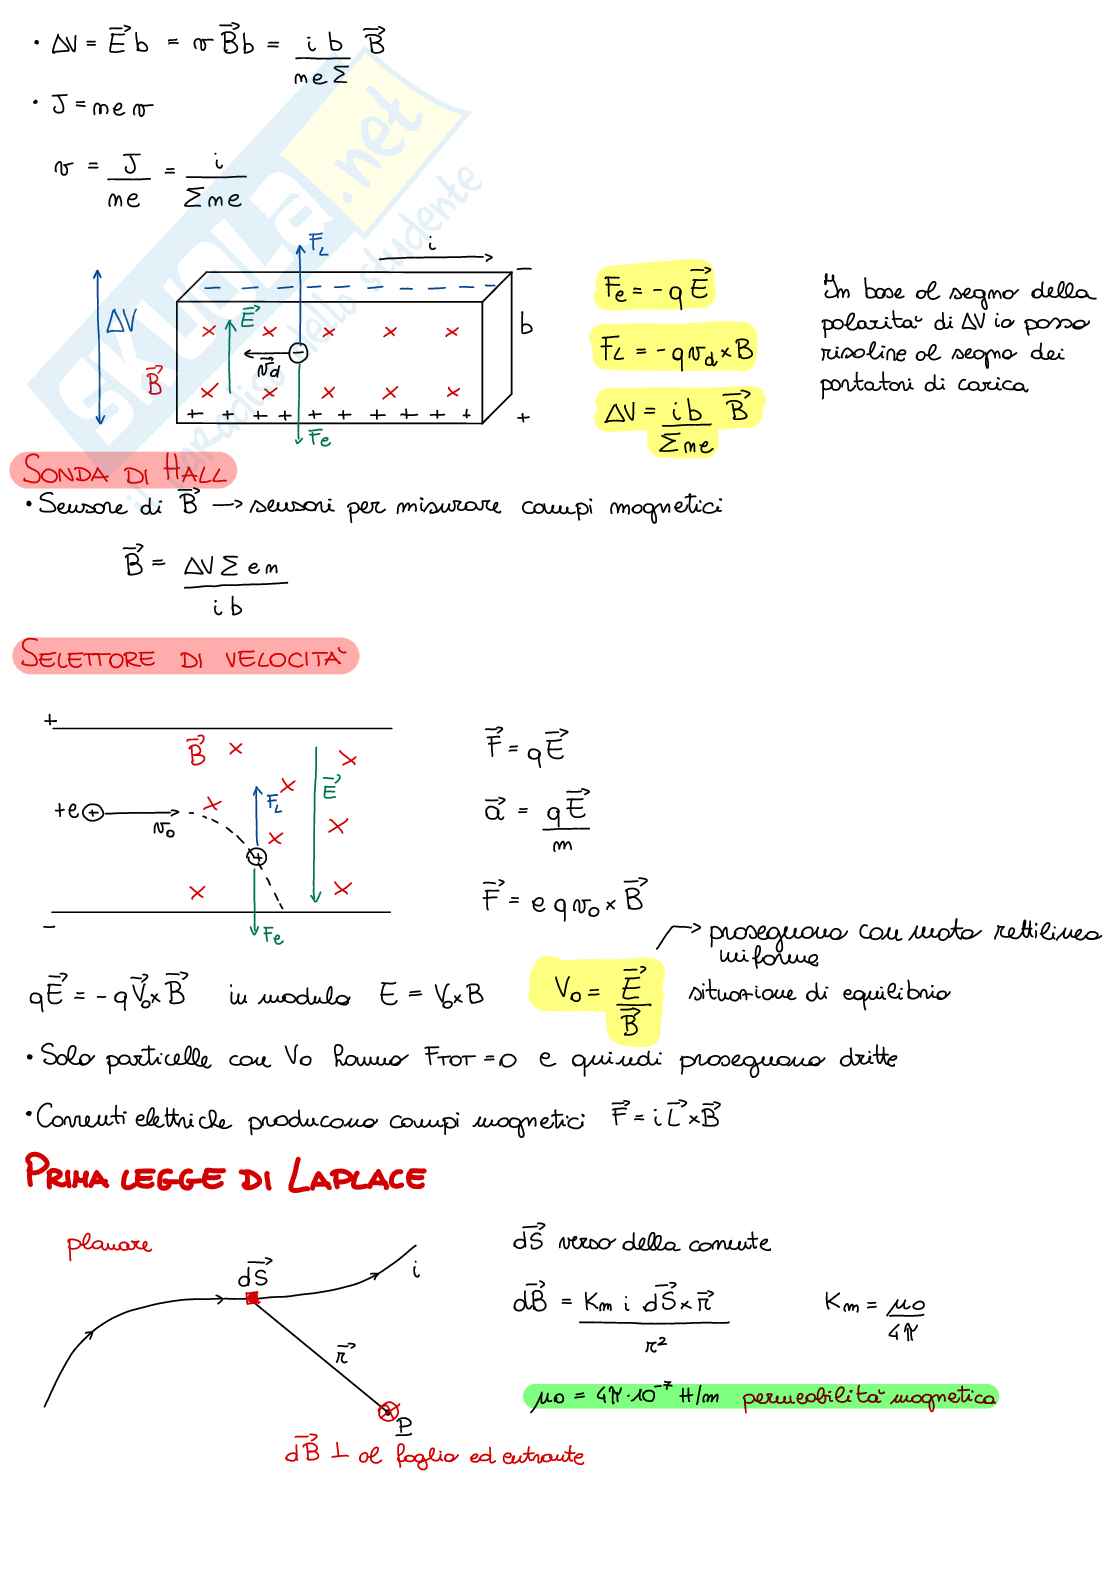 • ΔV = E⃗ b = v B⃗ b = i b / n e Σ B⃗
• J = n e v
v = J / n e = i / Σ n e
F_L
i
−
− − − − − − − − − −
ΔV
E⃗
× × × × ×
b
−
v⃗d
B⃗
× × × × ×
+ + + + + + + + + +
+
Fe
Fe = − q E⃗
F_L = − q vd × B
ΔV = i b / Σ n e B⃗
In base al segno della
polarità di ΔV io posso
risaline al segno dei
portatori di carica
SONDA DI HALL
• Sensore di B⃗ → sensori per misurare campi magnetici
B⃗ = ΔV Σ e n / i b
SELETTORE DI VELOCITÀ
+
B⃗ × ×
E⃗
+e + v0
F_L
× × × ×
+
× ×
−
Fe
F⃗ = q E⃗
a⃗ = q E⃗ / m
F⃗ = e q v0 × B⃗
→ proseguono con moto rettilineo
uniforme
q E⃗ = − q V⃗0 × B⃗ in modulo E = V0 × B V0 = E⃗ / B⃗ situazione di equilibrio
• Solo particelle con V0 hanno FTOT = 0 e quindi proseguono dritte
• Correnti elettriche producono campi magnetici F⃗ = i L⃗ × B⃗
PRIMA LEGGE DI LAPLACE
planare
dS⃗
i
r⃗
P
dB⃗ ⊥ al foglio ed entrante
dS⃗ verso della corrente
dB⃗ = Km i dS⃗ × r⃗ / r² Km = μ0 / 4π
μ0 = 4π · 10⁻⁷ H/m permeabilità magnetica
SKUOLA.net
il paradiso dello studente